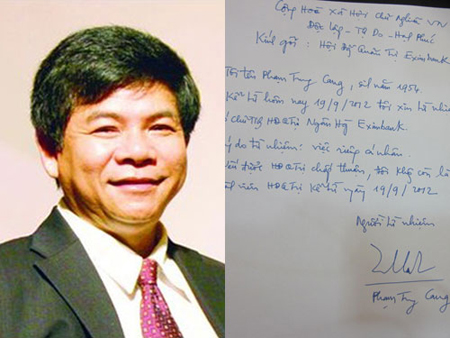 Cộng Hoà Xã Hội Chủ Nghĩa VN
Độc Lập - Tự Do - Hạnh Phúc
Kính gởi : Hội Đồng Quản Trị Eximbank
Tôi tên Phạm Trung Cang, năm 1954
Kể từ hôm nay 19/9/2012 tôi xin từ nhiệm
HĐQTrị Ngân Hàng Eximbank
do từ nhiệm : việc riêng cá nhân.
được HĐQTrị chấp thuận, tôi không còn là
viên HĐQTrị kể từ ngày 19/9/2012
Người từ nhiệm
Phạm Trung Cang